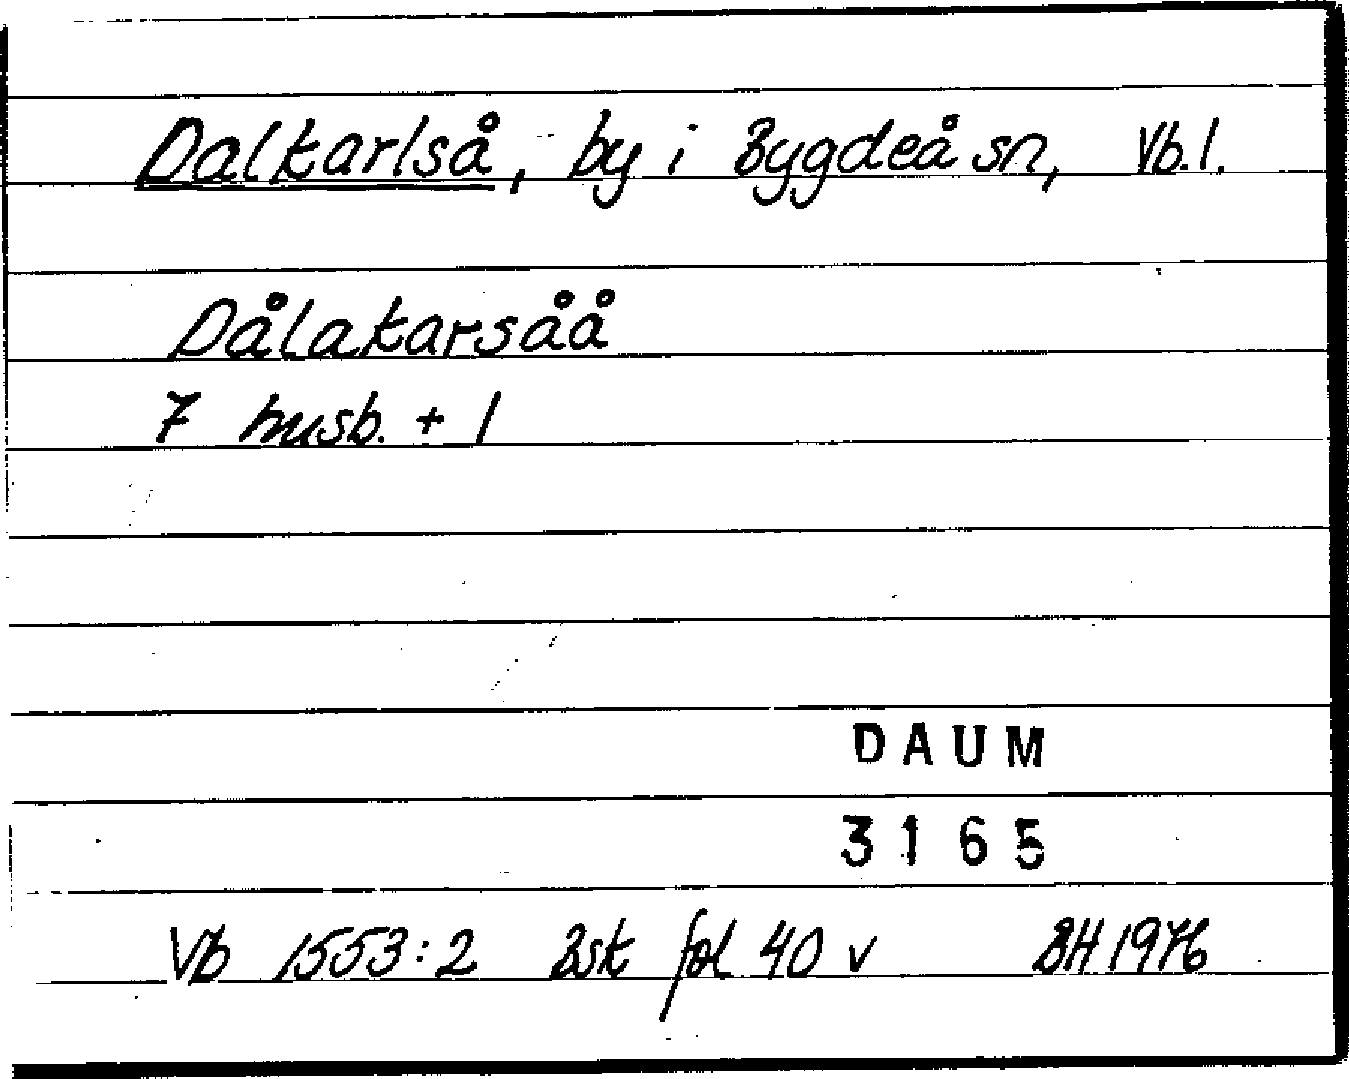 Dalkarlså, by i Bygdeå sn, Vb.l.
Dålakarsåå
7 husb. + 1
DAUM
3165
Vb 1553:2 Bsk fol 40 v BH 1976